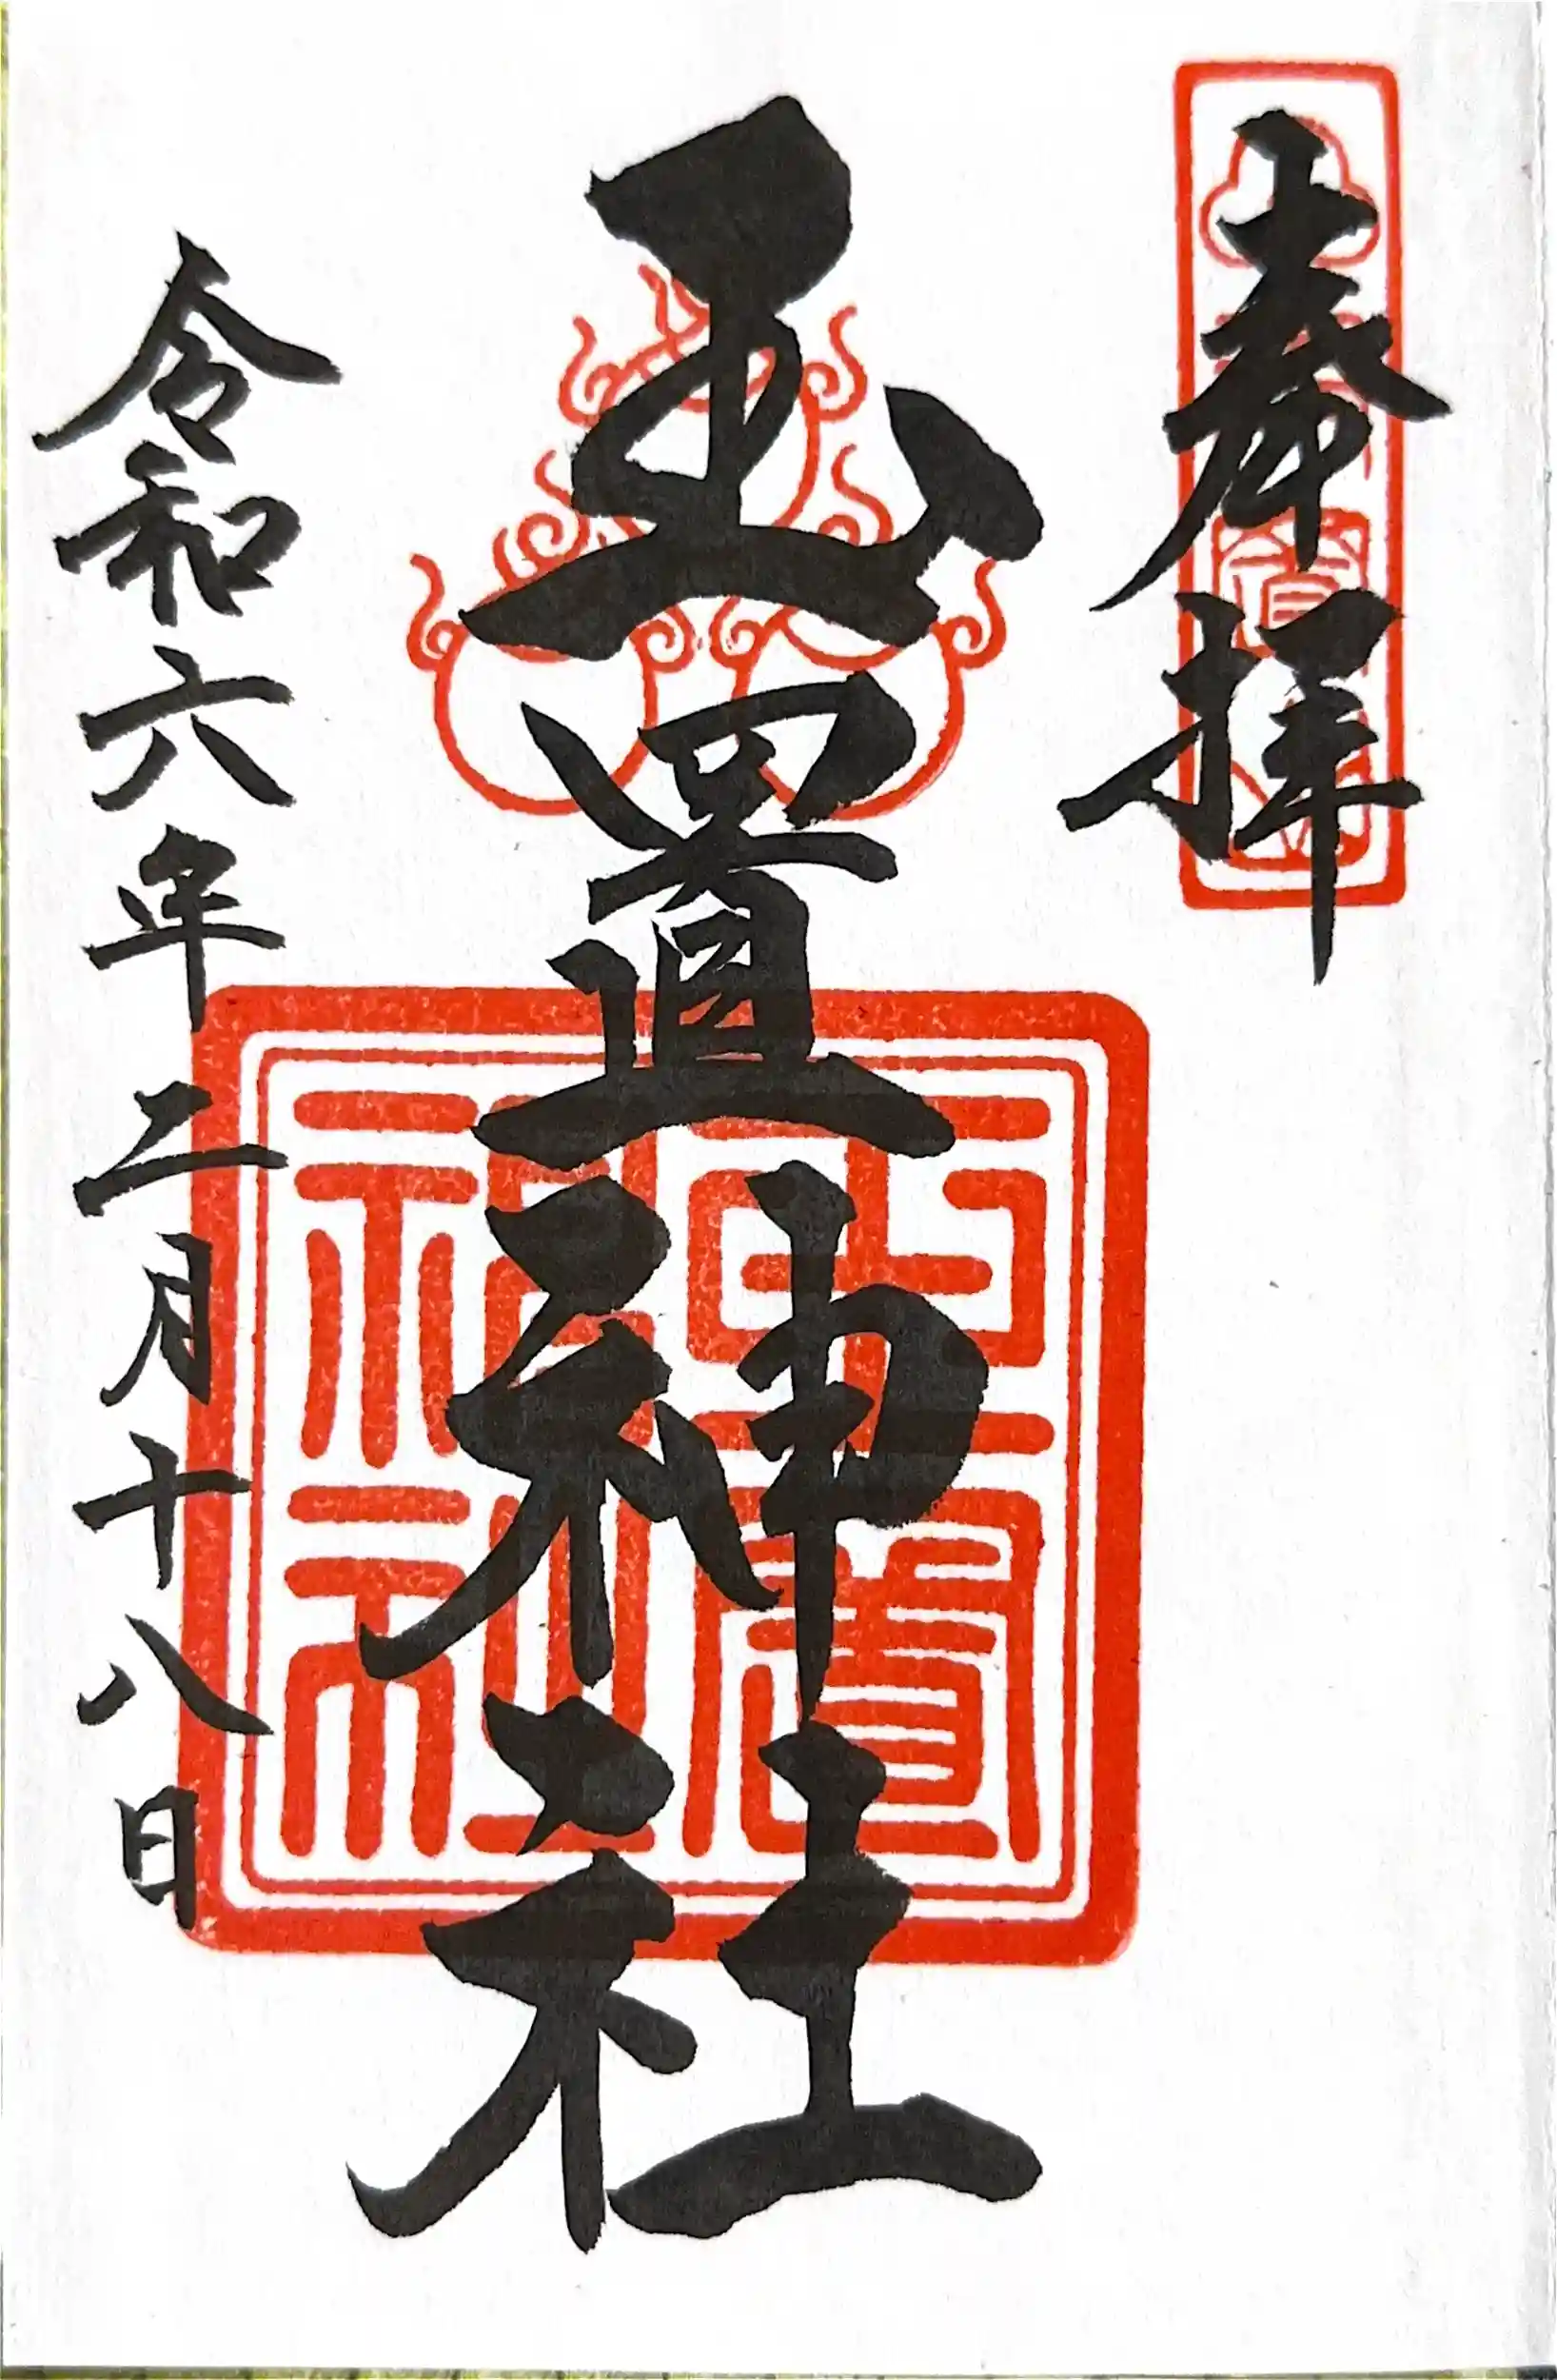 奉拝
玉置神社
玉置神社
令和六年二月十八日